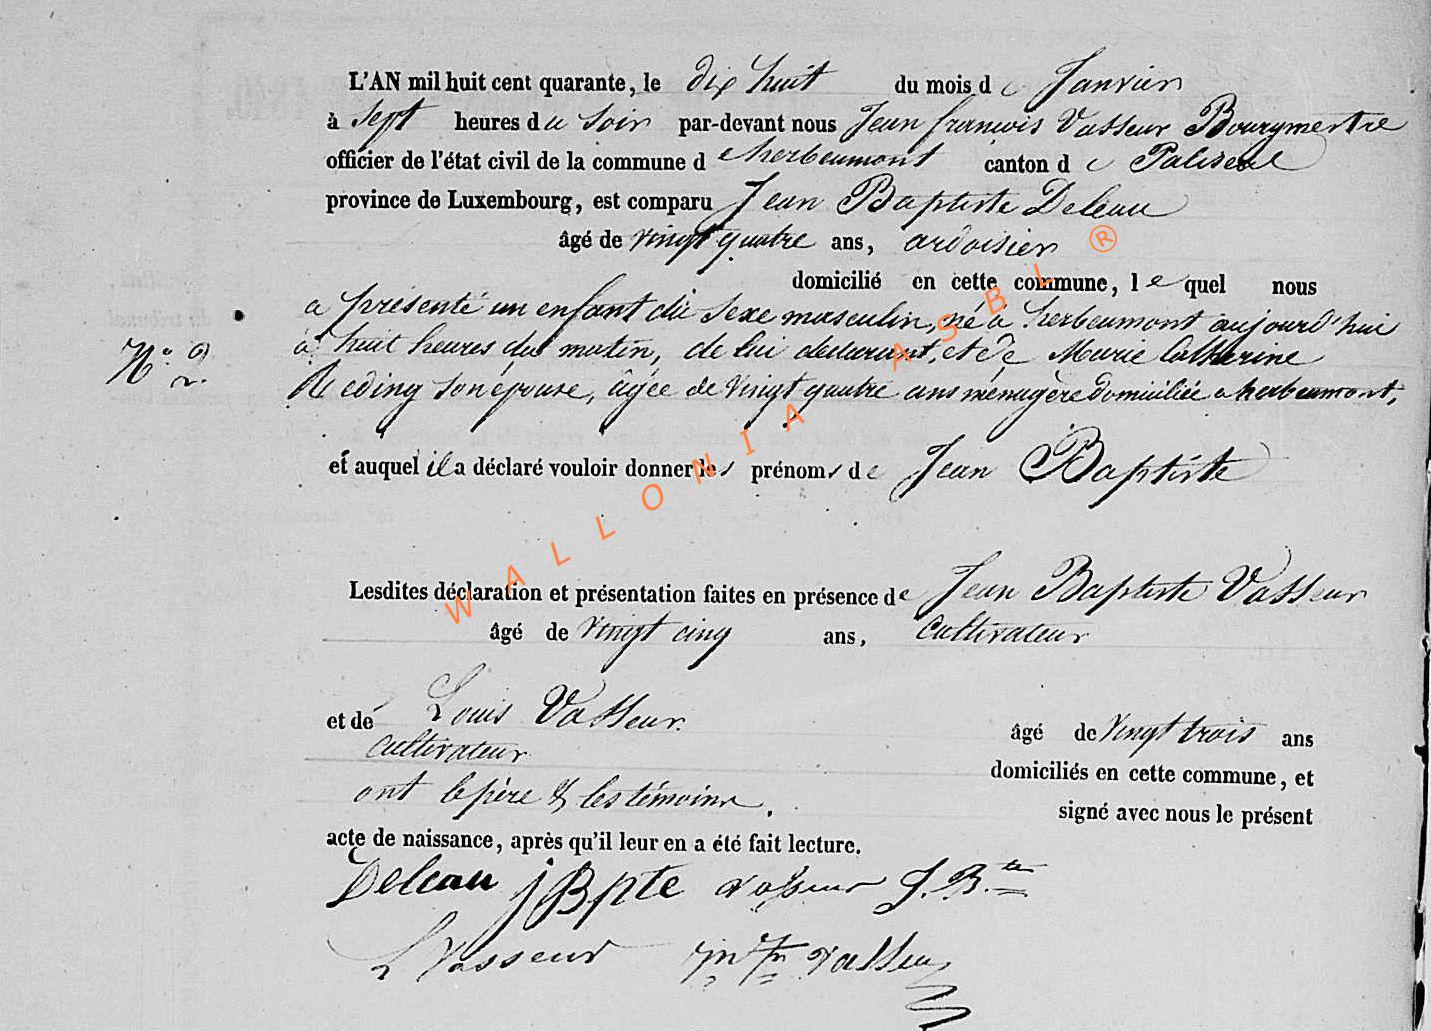 L'AN mil huit cent quarante, le dix huit du mois de Janvier
à sept heures du soir par-devant nous Jean françois Vasseur Bourgmestre
officier de l'état civil de la commune d'herbeumont canton de Paliseul
province de Luxembourg, est comparu Jean Baptiste Deleau
âgé de vingt quatre ans, ardoisier
domicilié en cette commune, lequel nous
a présenté un enfant du sexe masculin, né a herbeumont aujourd'hui
N.° 2.
à huit heures du matin, de lui declarant, et de Marie Catherine
Reding son épouse, âgée de Vingt quatre ans ménagère domiciliée a herbeumont,
et auquel il a déclaré vouloir donner les prénoms de Jean Baptiste
Lesdites déclaration et présentation faites en présence de Jean Baptiste Vasseur
âgé de vingt cinq ans, cultivateur
et de Louis Vasseur. âgé de Vingt trois ans
cultivateur
domiciliés en cette commune, et
ont le père & les témoins
signé avec nous le présent
acte de naissance, après qu'il leur en a été fait lecture.
Deleau J Bpte vasseur J. B.te
L Vasseur J. fr. Vasseur
WALLONIA ASBL ®